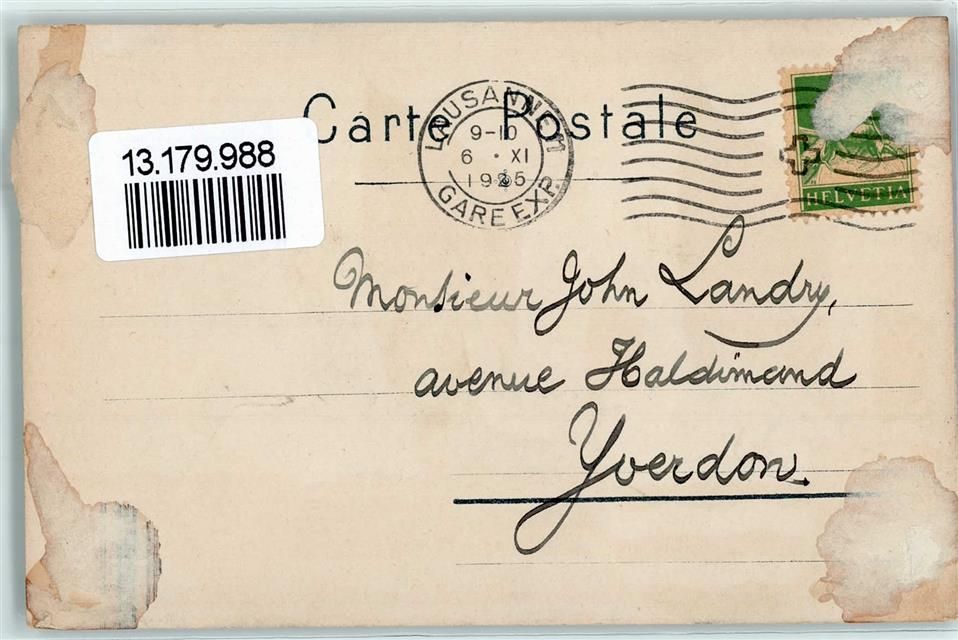 Carte Postale
13.179.988
LAUSANNE 1
9-10
6 · XI
1925
GARE EXP.
HELVETIA
Monsieur John Landry,
avenue Haldimand
Yverdon.